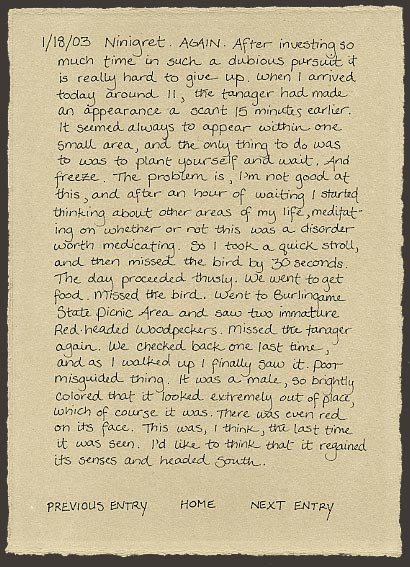 1/18/03 Ninigret. AGAIN. After investing so
much time in such a dubious pursuit it
is really hard to give up. When I arrived
today around 11, the tanager had made
an appearance a scant 15 minutes earlier.
It seemed always to appear within one
small area, and the only thing to do was
to was to plant yourself and wait. And
freeze. The problem is, I'm not good at
this, and after an hour of waiting I started
thinking about other areas of my life, meditat-
ing on whether or not this was a disorder
worth medicating. So I took a quick stroll,
and then missed the bird by 30 seconds.
The day proceeded thusly. We went to get
food. Missed the bird. Went to Burlingame
State Picnic Area and saw two immature
Red-headed Woodpeckers. Missed the tanager
again. We checked back one last time,
and as I walked up I finally saw it. Poor
misguided thing. It was a male, so brightly
colored that it looked extremely out of place,
which of course it was. There was even red
on its face. This was, I think, the last time
it was seen. I'd like to think that it regained
its senses and headed South.
PREVIOUS ENTRY HOME NEXT ENTRY